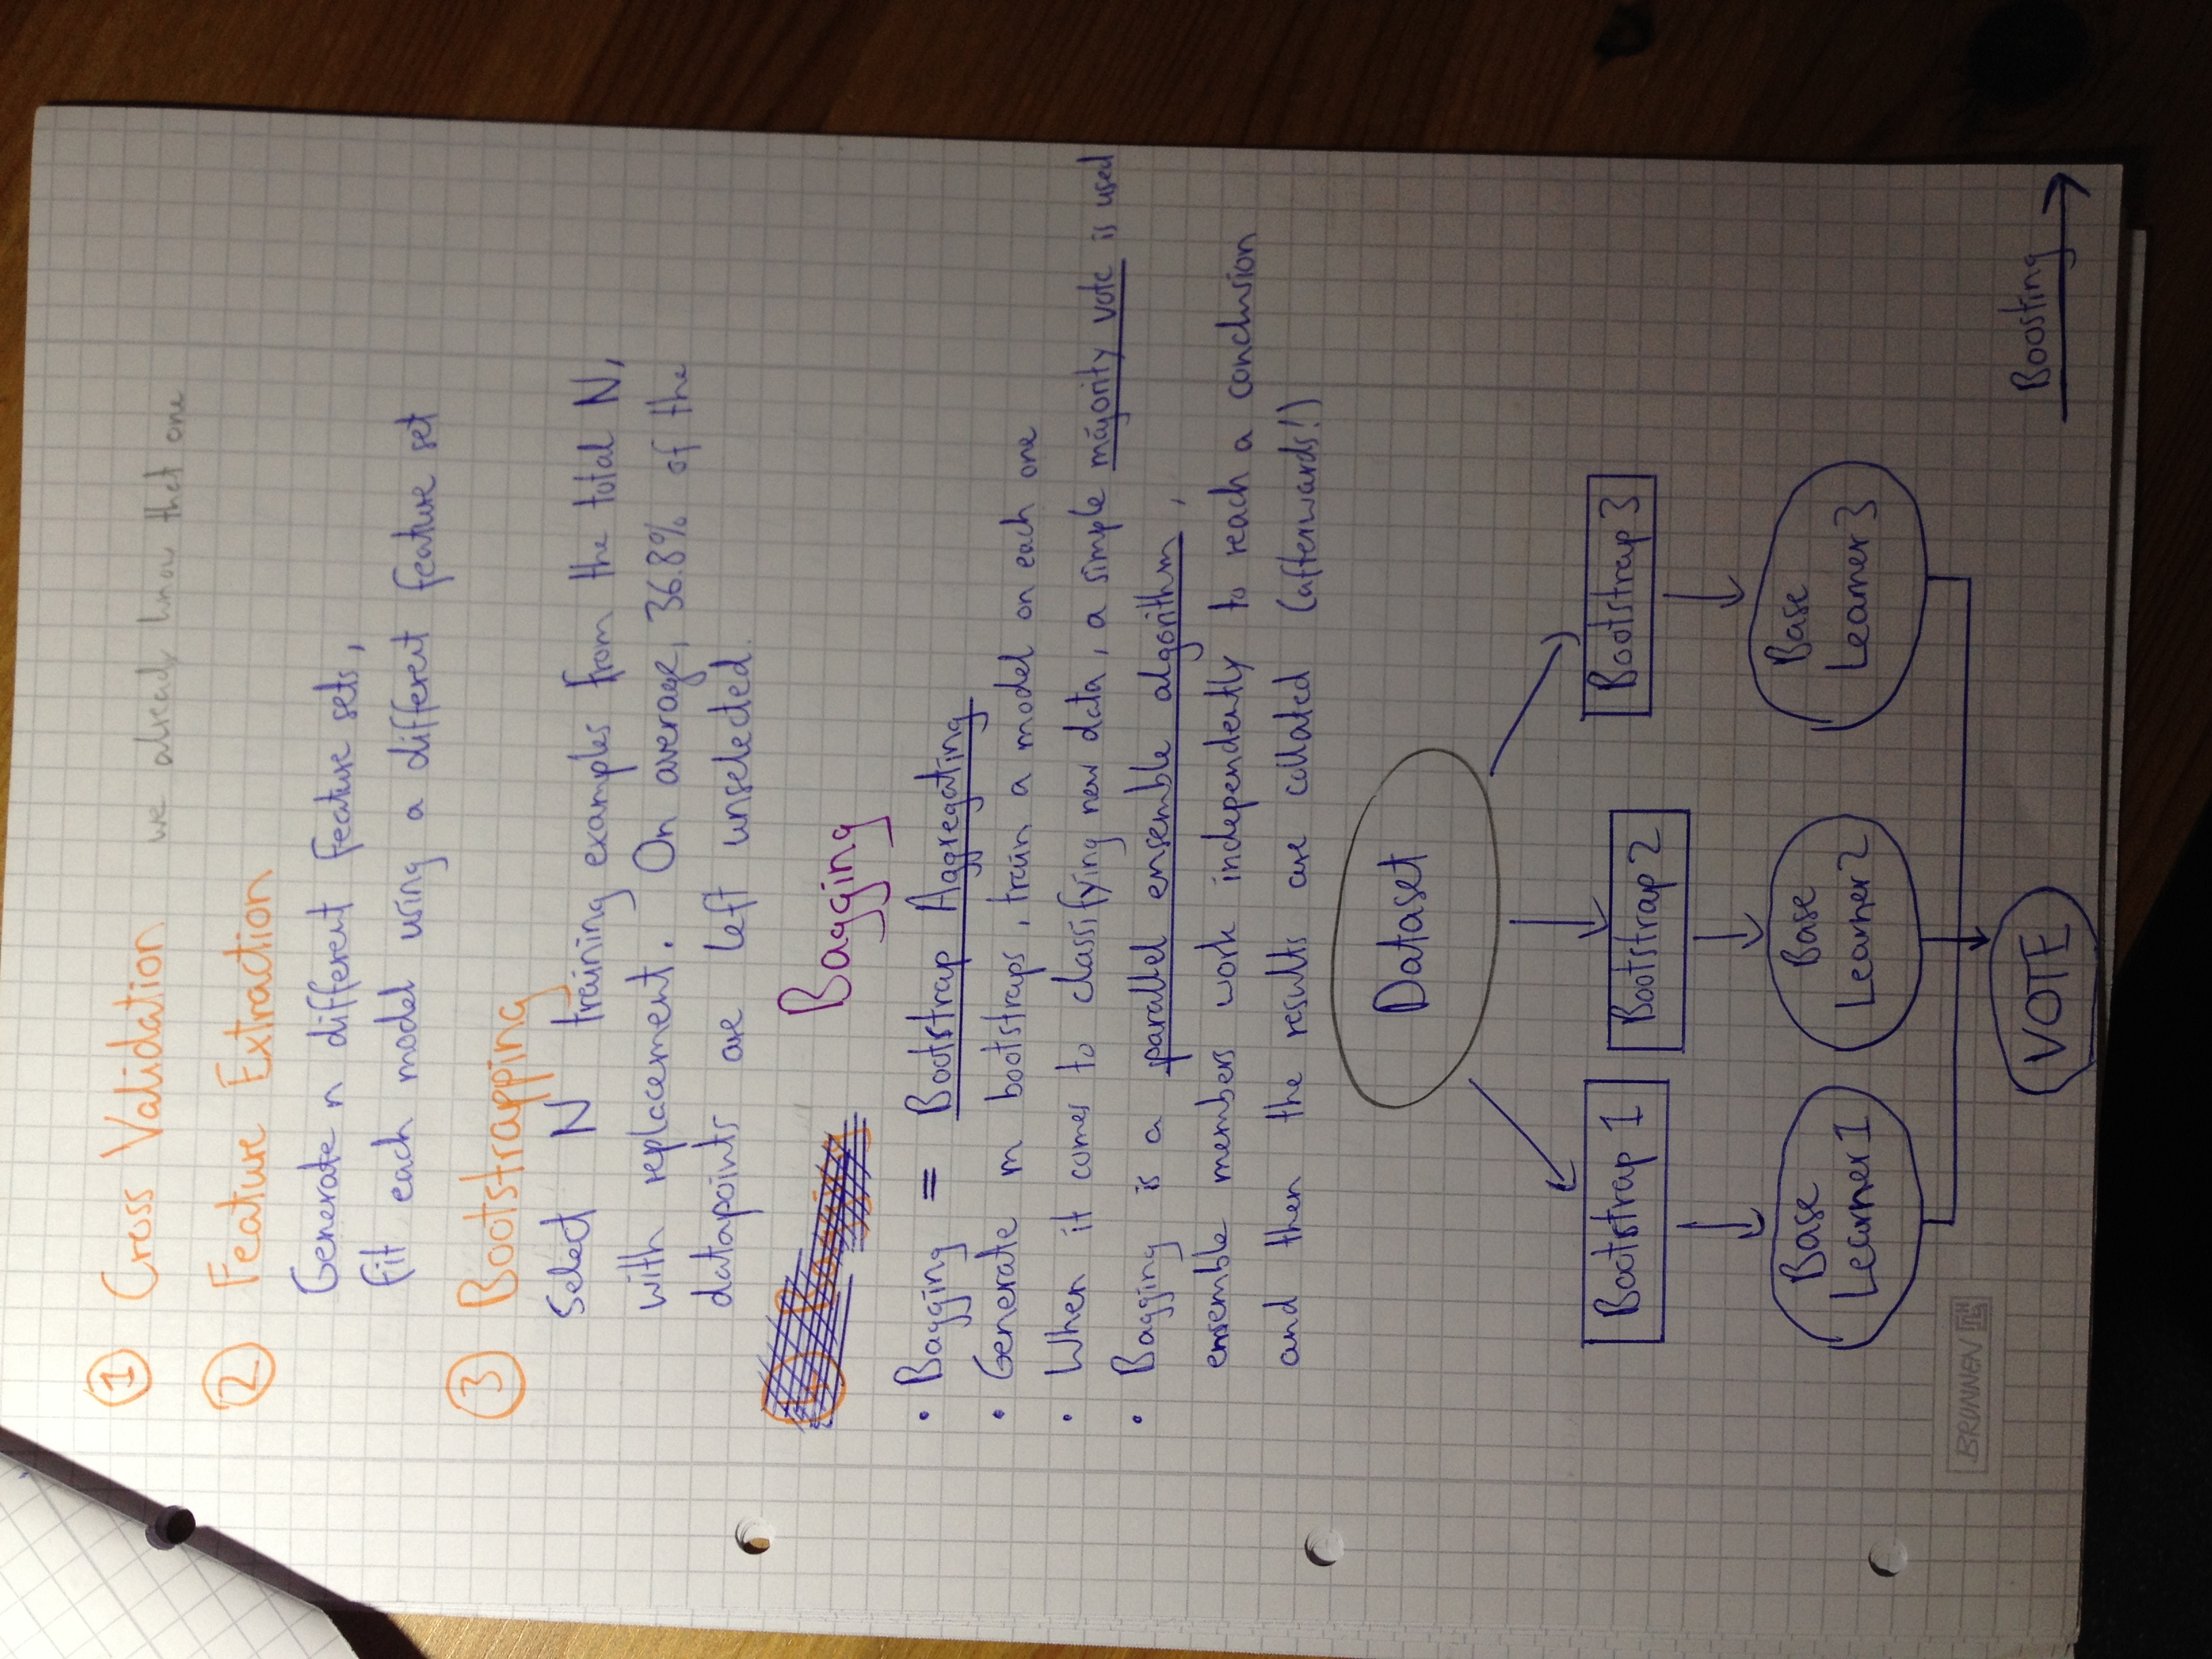 ① Cross Validation we already know that one
② Feature Extraction
Generate n different feature sets,
fit each model using a different feature set
③ Bootstrapping
Select N training examples from the total N,
with replacement. On average, 36.8% of the
datapoints are left unselected.
④ Bagging
Bagging
• Bagging = Bootstrap Aggregating
• Generate m bootstraps, train a model on each one
• When it comes to classifying new data, a simple majority vote is used
• Bagging is a parallel ensemble algorithm,
ensemble members work independently to reach a conclusion
and then the results are collated (afterwards!)
Dataset
Bootstrap 1
Bootstrap 2
Bootstrap 3
Base
Learner 1
Base
Learner 2
Base
Learner 3
BRUNNEN
VOTE
Boosting